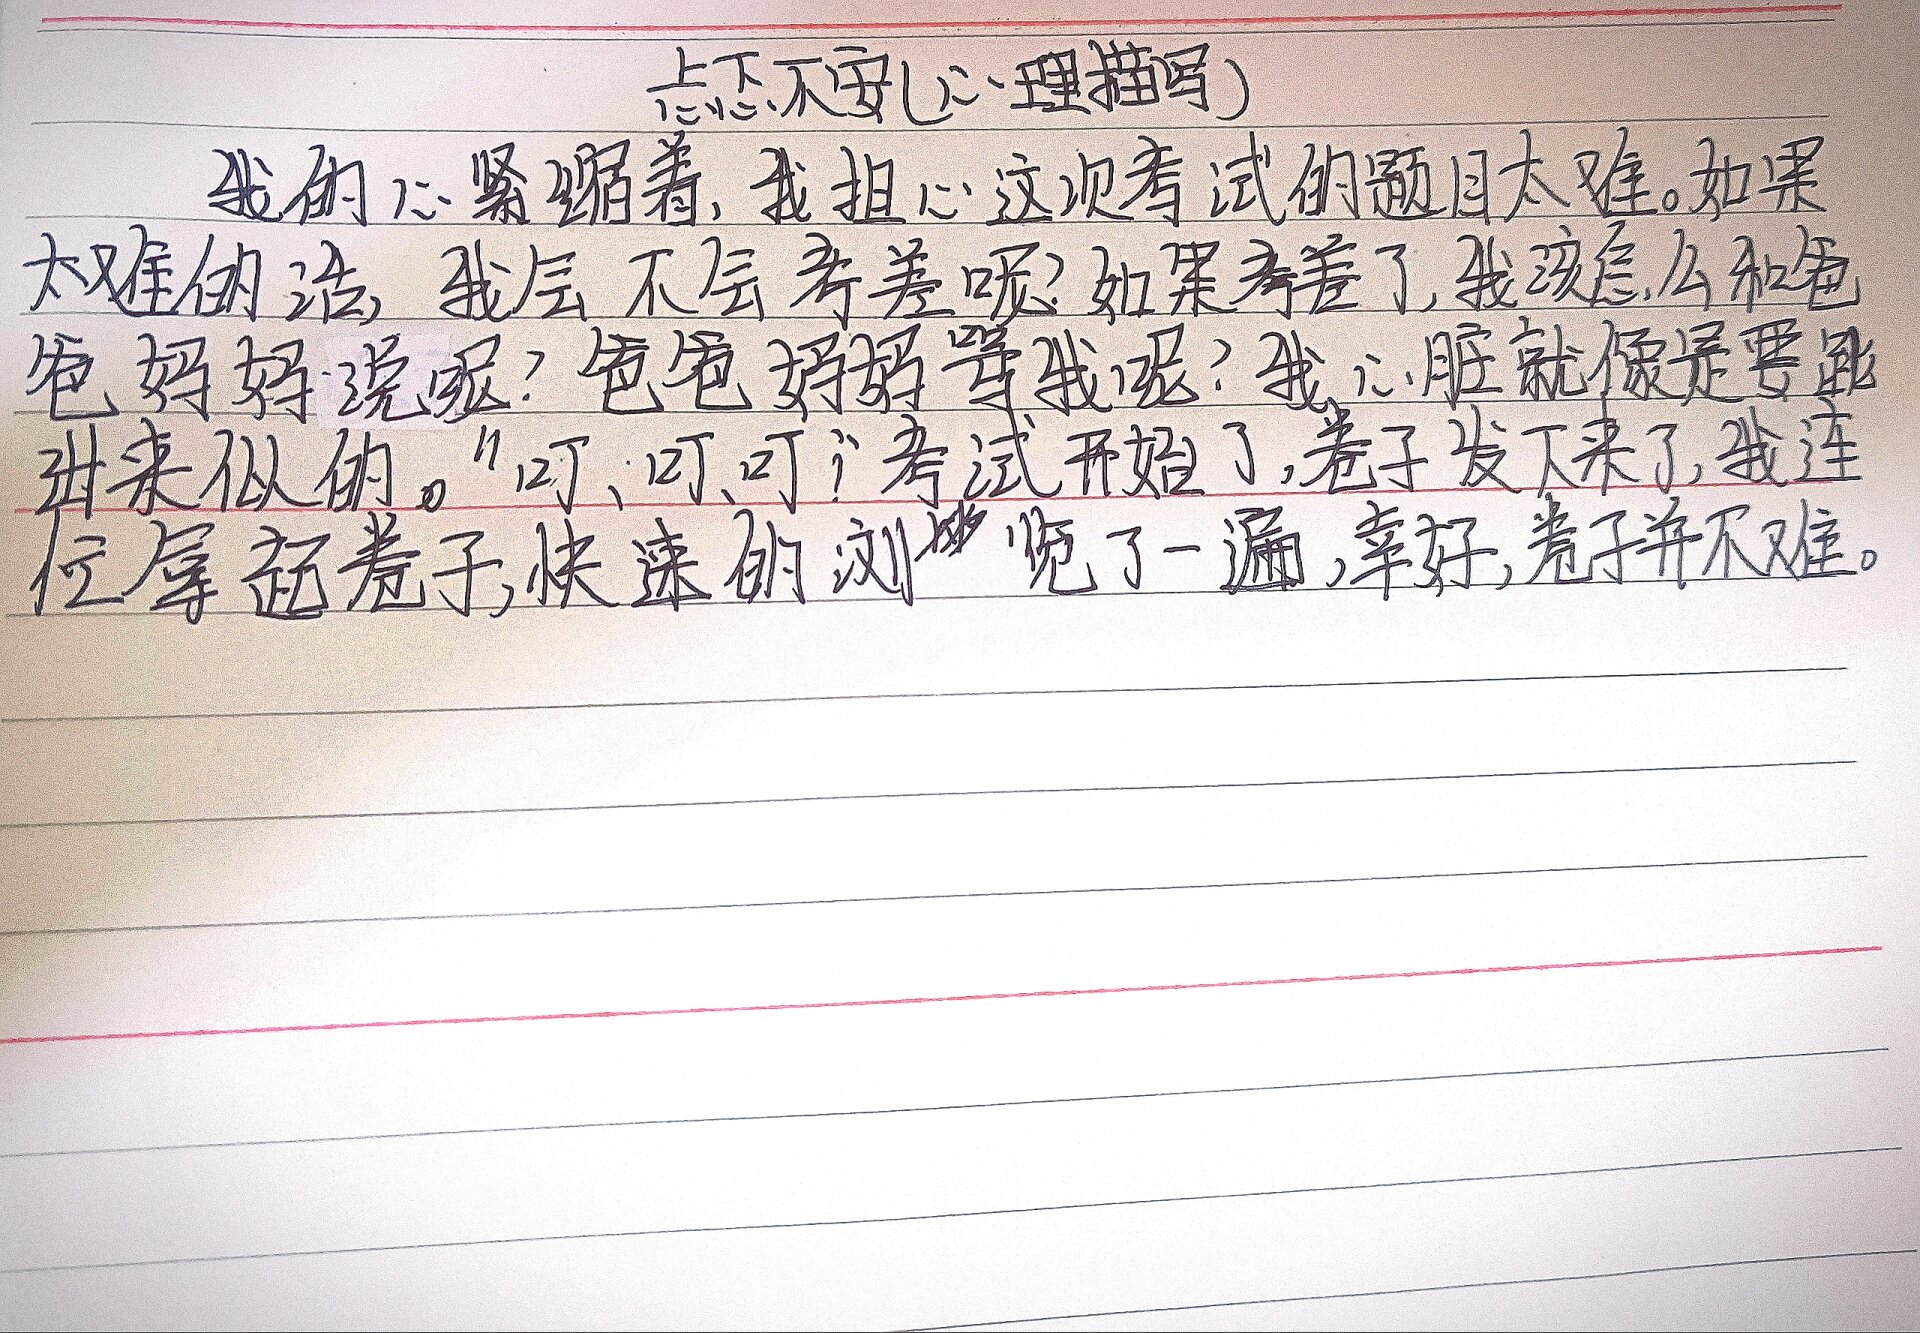 忐忑不安(心理描写)
我的心紧缩着,我担心这次考试的题目太难。如果
太难的话,我会不会考差呢?如果考差了,我该怎么和爸
爸妈妈说呢?爸爸妈妈等我呢?我心脏就像是要跳
出来似的。"叮、叮、叮"考试开始了,卷子发下来了,我连
位拿起卷子,快速的浏览了一遍,幸好,卷子并不难。